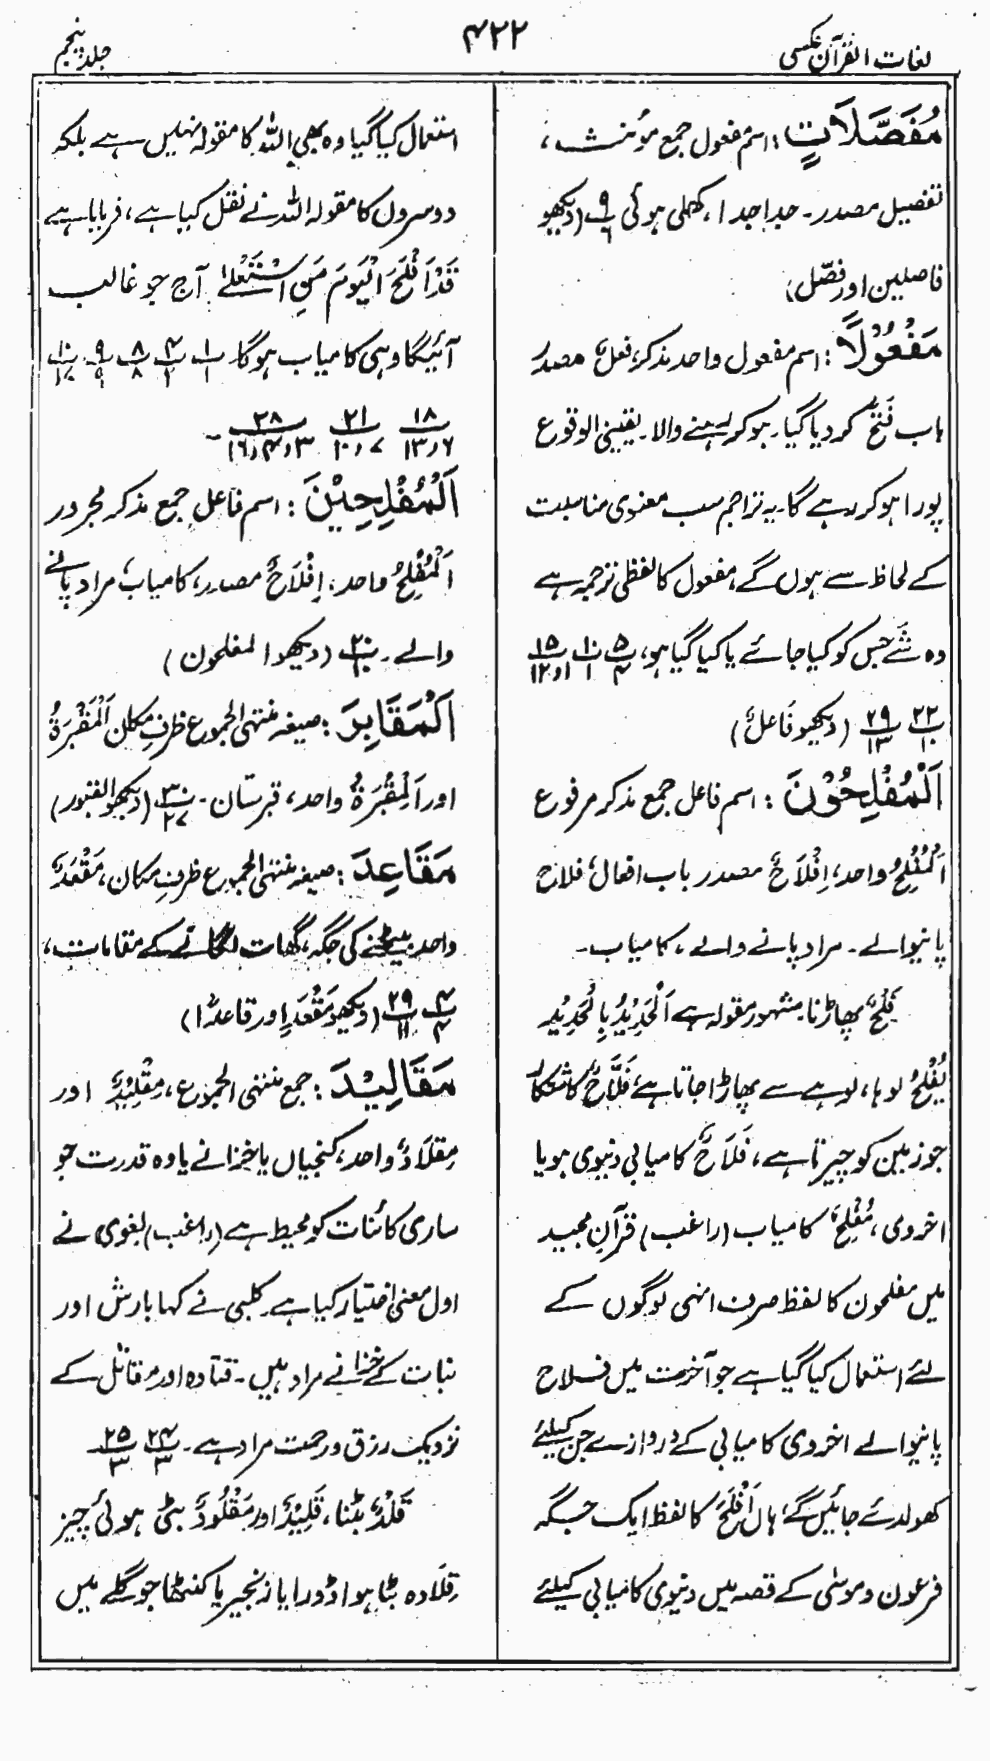 لغات القرآن عکسی
۴۲۲
جلد پنجم
مُفَصَّلَاتٍ : اسم مفعول جمع مؤنث،
تفصیل مصدر۔ جدا جدا، کھلی ہوئی ۹/۶ (دیکھو
فاصلین اور فصّل)
مَفْعُوْلًا : اسم مفعول واحد مذکر، فعلٌ مصدر
باب فَتَحَ کر دیا گیا۔ ہو کر رہنے والا۔ یقینی الوقوع
پورا ہو کر رہے گا۔ یہ تراجم سب معنوی مناسبت
کے لحاظ سے ہوں گے، مفعول کا لفظی ترجمہ ہے
وہ شَے جس کو کیا جائے یا کیا گیا ہو، ۵/۴ ۱۰/۱ ۱۵/۱ر۱۲
۲۲/۲ ۲۹/۱۳ (دیکھو فَاعلٌ)
اَلْمُفْلِحُوْنَ : اسم فاعل جمع مذکر مرفوع
اَلْمُفْلِحُ واحد، اِفْلَاحٌ مصدر باب افعال، فلاح
پانیوالے۔ مراد پانے والے، کامیاب۔
فَلْحٌ پھاڑنا۔ مشہور مقولہ ہے اَلْحَدِیْدُ بِالْحَدِیْدِ
یُفْلَحُ لوہا، لوہے سے پھاڑا جاتا ہے، فَلَّاحٌ کاشتکار
جو زمین کو چیرتا ہے، فَلَاحٌ کامیابی دنیوی ہو یا
اخروی، مُفْلِحٌ کامیاب (راغب) قرآن مجید
میں مفلحون کا لفظ صرف انہی لوگوں کے
لئے استعمال کیا گیا ہے جو آخرت میں فلاح
پانیوالے اخروی کامیابی کے دروازے جن کیلئے
کھولدئے جائیں گے، ہاں اَفْلَحَ کا لفظ ایک جگہ
فرعون و موسٰی کے قصہ میں دنیوی کامیابی کیلئے
استعمال کیا گیا وہ بھی اللہ کا مقولہ نہیں ہے بلکہ
دوسروں کا مقولہ اللہ نے نقل کیا ہے، فرمایا ہے
قَدْ اَفْلَحَ الْیَوْمَ مَنِ اسْتَعْلٰے آج جو غالب
آئیگا وہی کامیاب ہوگا۔ ۱/۱ ۴/۲ ۸/۸ ۹/۹ ۱۰/۱۷
۱۸/۶ر۱۳ ۲۱/۷ر۱۰ ۲۸/۳ر۴ر۱۶ ۔
اَلْمُفْلِحِیْنَ : اسم فاعل جمع مذکر مجرور
اَلْمُفْلِحُ واحد، اِفْلَاحٌ مصدر، کامیاب، مراد پانے
والے۔ ۲۰/۱۰ (دیکھو المفلحون)
اَلْمَقَابِرَ : صیغہ منتہی الجموع ظرفِ مکان اَلْمَقْبَرَۃُ
اور اَلْمِقْبَرَۃُ واحد، قبرستان۔ ۳۰/۲۷ (دیکھو القبور)
مَقَاعِدَ : صیغہ منتہی الجموع ظرفِ مکان، مَقْعَدٌ
واحد بیٹھنے کی جگہ، گھات لگانے کے مقامات،
۴/۴ ۲۹/۱۱ (دیکھو مَقْعَدِ اور قاعدًا)
مَقَالِیْدَ : جمع منتہی الجموع، مِقْلِیْدٌ اور
مِقْلَادٌ واحد، کنجیاں یا خزانے یا وہ قدرت جو
ساری کائنات کو محیط ہے (راغب) بغوی نے
اول معنی اختیار کیا ہے۔ کلبی نے کہا بارش اور
نبات کے خزانے مراد ہیں۔ قتادہ اور مقاتل کے
نزدیک رزق و رحمت مراد ہے۔ ۲۴/۳ ۲۵/۳
قَلْدٌ بٹنا، قَلِیْدٌ اور مَقْلُودٌ بٹی ہوئی چیز
قِلَادہ بٹا ہوا ڈورا یا زنجیر یا کنٹھا جو گلے میں